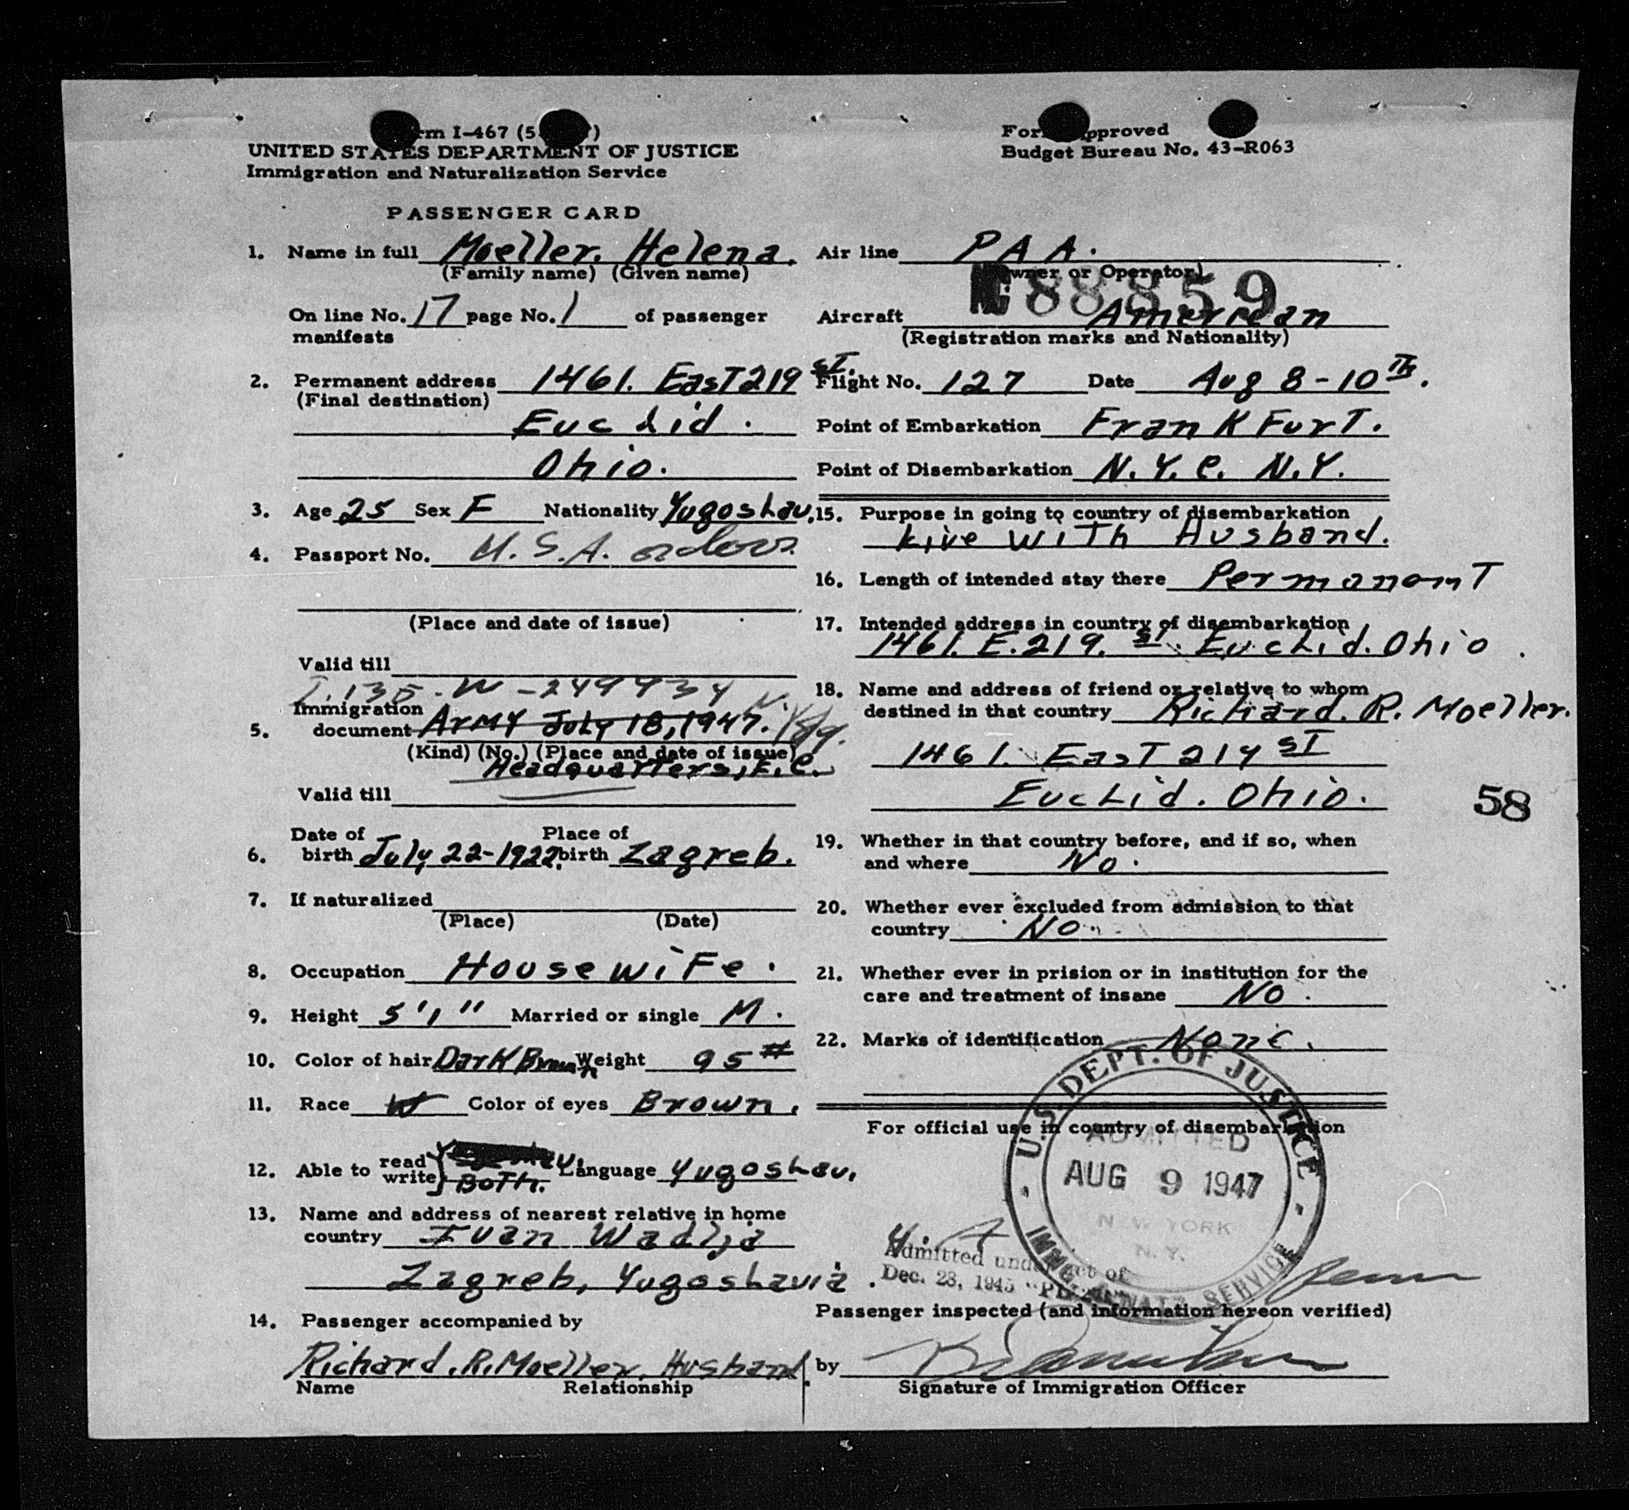 Form I-467 (5
UNITED STATES DEPARTMENT OF JUSTICE
Immigration and Naturalization Service
Form Approved
Budget Bureau No. 43-R063
PASSENGER CARD
1. Name in full Moeller. Helena.
(Family name) (Given name)
On line No. 17 page No. 1 of passenger
manifests
2. Permanent address 1461. East 219 st.
(Final destination)
Euclid.
Ohio.
3. Age 25 Sex F Nationality Yugoslav.
4. Passport No. U.S.A. orders
(Place and date of issue)
Valid till
I.135-W-249934
Immigration
5. document Army July 18, 1947.
(Kind) (No.) (Place and date of issue)
Headquarters, E.C.
Valid till
Date of Place of
6. birth July 22-1922. birth Zagreb.
7. If naturalized
(Place) (Date)
8. Occupation Housewife.
9. Height 5'1" Married or single M.
10. Color of hair Dark Brown Weight 95#
11. Race W Color of eyes Brown.
12. Able to read write} Both. Language Yugoslav.
13. Name and address of nearest relative in home
country Ivan Wadlja
Zagreb, Yugoslavia.
14. Passenger accompanied by
Richard. R. Moeller. Husband.
Name Relationship
Air line P A A.
(Owner or Operator)
NC 88859
Aircraft American
(Registration marks and Nationality)
Flight No. 127 Date Aug 8-10th.
Point of Embarkation FrankFurt.
Point of Disembarkation N.Y.C. N.Y.
15. Purpose in going to country of disembarkation
Live with Husband.
16. Length of intended stay there Permanomt
17. Intended address in country of disembarkation
1461. E. 219. st. Euclid. Ohio.
18. Name and address of friend or relative to whom
destined in that country Richard. R. Moeller.
1461. East 219 st
Euclid. Ohio.
58
19. Whether in that country before, and if so, when
and where No.
20. Whether ever excluded from admission to that
country No.
21. Whether ever in prision or in institution for the
care and treatment of insane No.
22. Marks of identification None.
For official use in country of disembarkation
U.S. DEPT. OF JUSTICE
ADMITTED
AUG 9 1947
NEW YORK
N.Y.
IMMG. & NATZ. SERVICE
Admitted under Act of
Dec. 28, 1945
Passenger inspected (and information hereon verified)
by
Signature of Immigration Officer